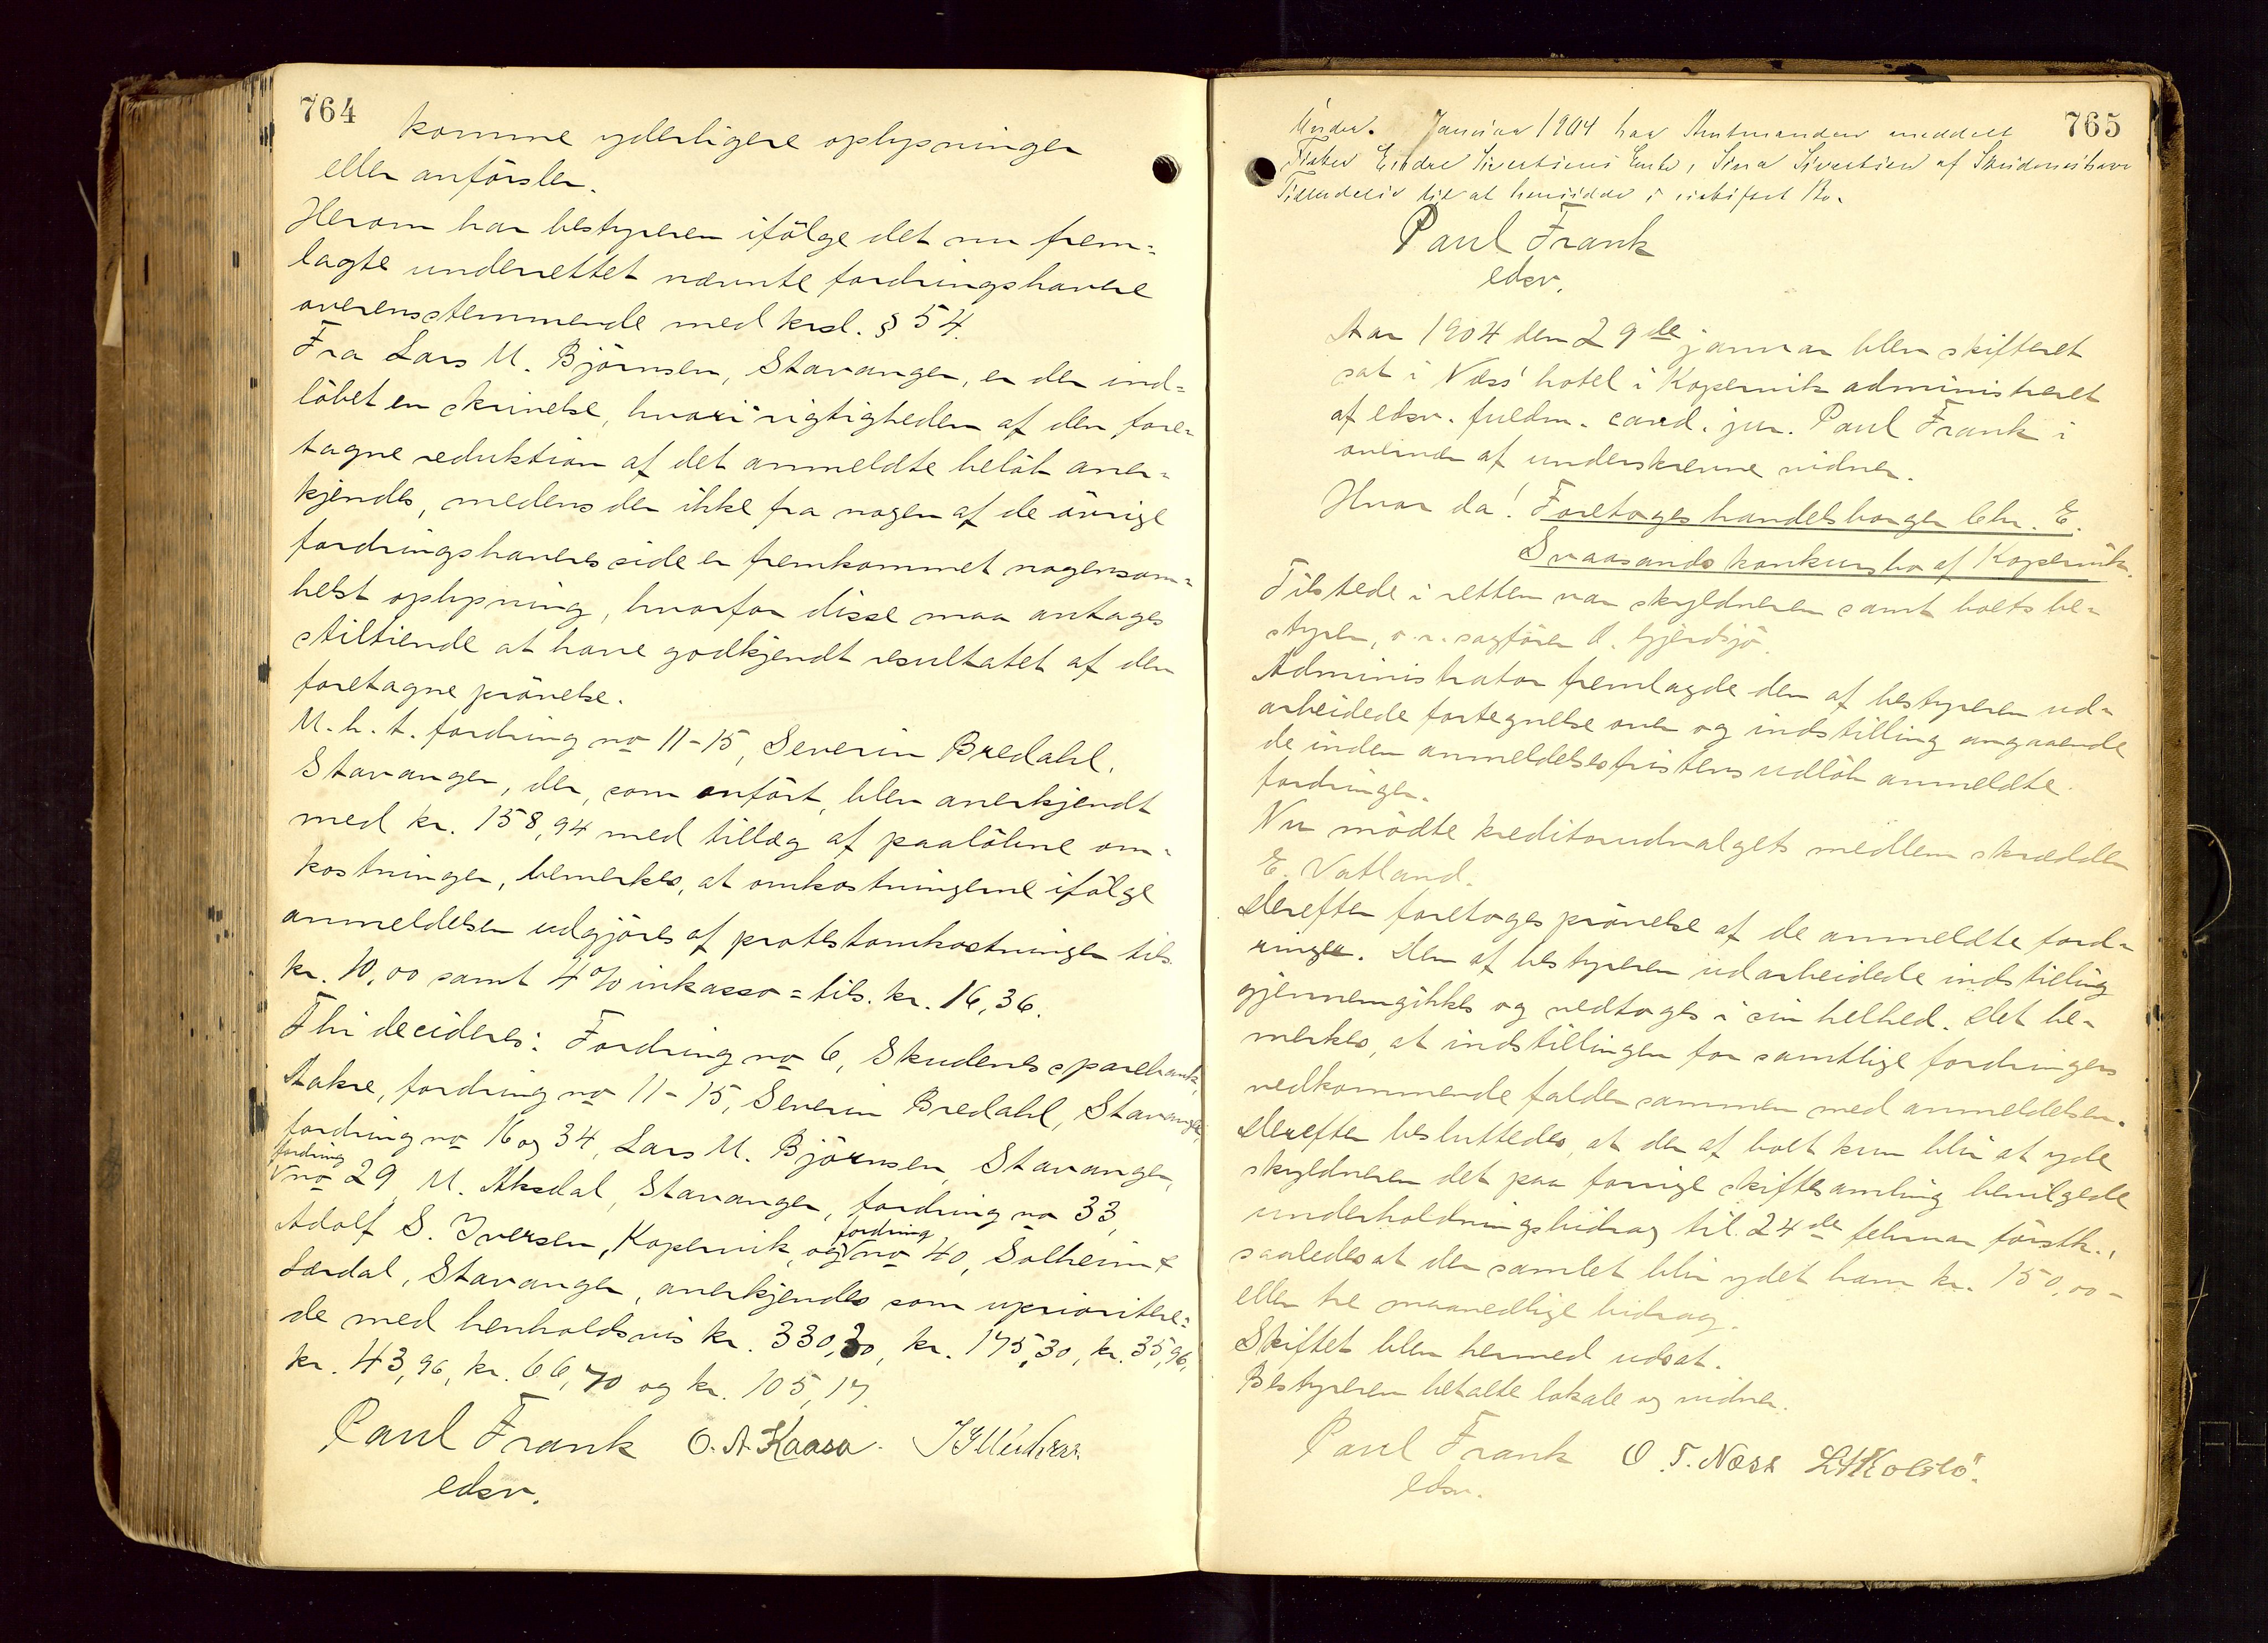 764
komme yderligere oplysninger
eller anförsler.
Herom har bestyreren ifölge det nu frem=
lagte underrettet nævnte fordringshavere
overensstemmende med krsl. § 54.
Fra Lars M. Björnsen, Stavanger, er der ind=
löbet en skrivelse, hvori rigtigheden af den fore=
tagne reduktion af det anmeldte belöb aner=
kjendes, medens der ikke fra nogen af de övrige
fordringshaveres side er fremkommet nogensom=
helst oplysning, hvorfor disse maa antages
stiltiende at have godkjendt resultatet af den
foretagne prövelse.
M. h. t. fordring no 11-15, Severin Bredahl,
Stavanger, der, som anfört, blev anerkjendt
med kr. 158,94 med tillæg af paalöbne om=
kostninger, bemerkes, at omkostningerne ifölge
anmeldelsen udgjöres af protestomkostninger tils.
kr. 10,00 samt 4% inkasso = tils. kr. 16,36.
Thi decideres: Fordring no 6, Skudenes sparebank,
Aakre, fordring no 11-15, Severin Bredahl, Stavanger,
fordring no 16 og 34, Lars M. Björnsen, Stavanger,
fordring no 29, M. Aksdal, Stavanger, fordring no 33,
Adolf S. Iversen, Kopervik, og fordring no 40, Solheim &
Lærdal, Stavanger, anerkjendes som uprioritere=
de med henholdsvis kr. 330,30, kr. 175,30, kr. 35,96,
kr. 43,96, kr. 66,70 og kr. 105,17.
Paul Frank O. A. Kaasa
edsv.
765
Under. Januar 1904 har Amtmanden meddelt
Fisker Endre Sivertsens Enke, Sina Sivertsen af Skudeneshavn
Tilladelse til at hensidde i uskiftet Bo.
Paul Frank
edsv.
Aar 1904 den 29de januar blev skifteret
sat i Næss' hotel i Kopervik administreret
af edsv. fuldm. cand. jur. Paul Frank i
overvær af underskrevne vidner.
Hvor da! Foretoges handelsborger Chr. E.
Svaasands konkursbo af Kopervik.
Tilstede i retten var skyldneren samt boets be=
styrer, o. r. sagförer O. Gjerdsjö.
Administrator fremlagde den af bestyreren ud=
arbeidede fortegnelse over og indstilling angaaende
de inden anmeldelsesfristens udlöb anmeldte
fordringer.
Nu mödte kreditorudvalgets medlem skrædder
E. Vatland.
Derefter foretoges prövelse af de anmeldte ford=
ringer. Den af bestyreren udarbeidede indstilling
gjennemgikkes og vedtoges i sin helhed. Det be=
merkes, at indstillingen for samtlige fordringers
vedkommende falder sammen med anmeldelsen.
Derefter besluttedes, at der af boet kun blir at yde
skyldneren det paa forrige skiftesamling bevilgede
underholdningsbidrag til 24de februar förstk.,
saaledes at der samlet blir ydet ham kr. 150,00 -
eller tre maanedlige bidrag.
Skiftet blev hermed udsat.
Bestyreren betalte lokale og vidner.
Paul Frank O. T. Næss
edsv.